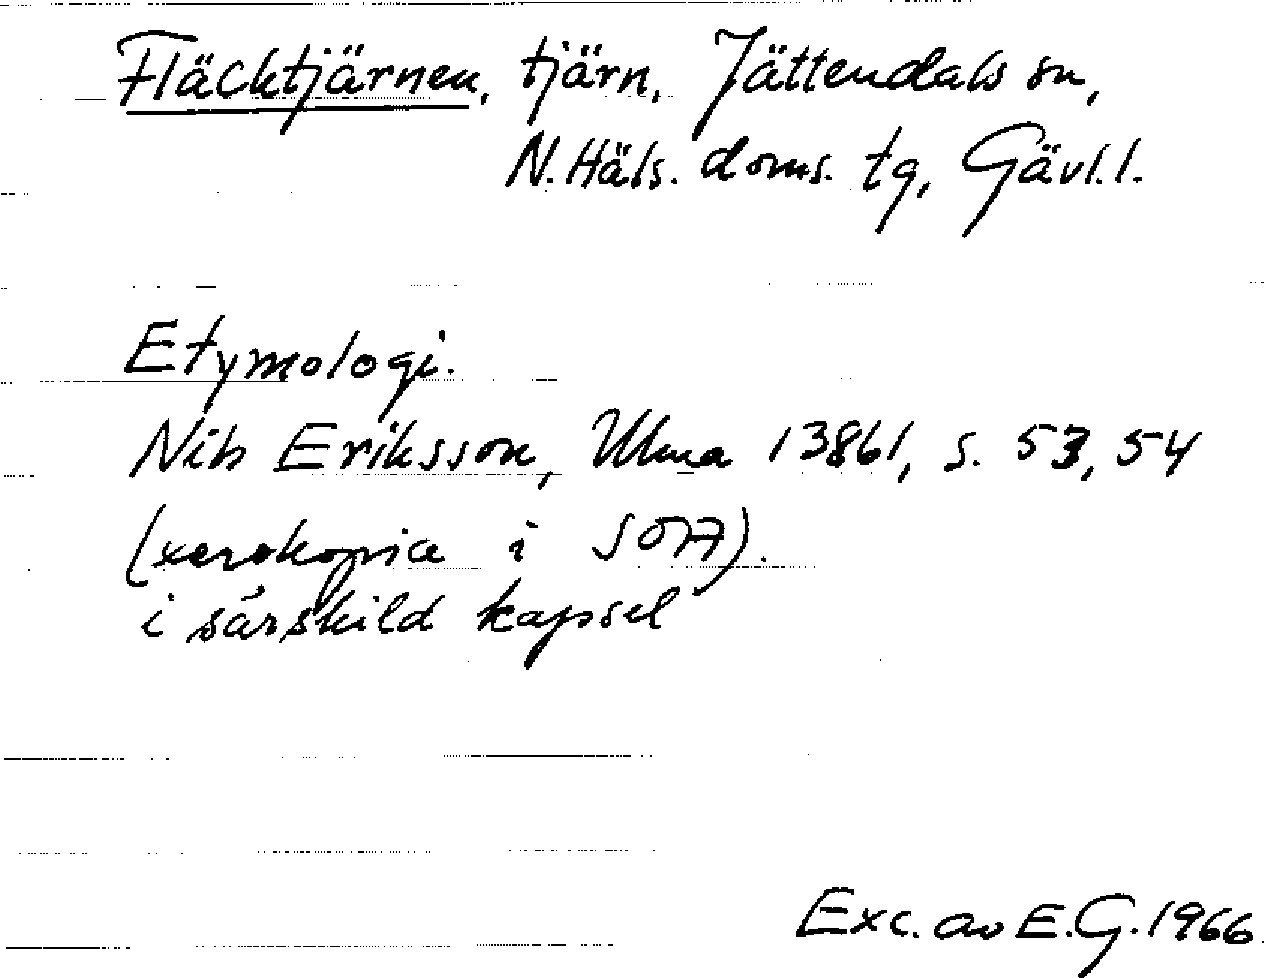 Fläcktjärnen, tjärn, Jättendals sn,
N. Häls. doms. tg, Gävl.l.
Etymologi.
Nils Eriksson, Ulma 13861, s. 53, 54
(xerokopia i SOA).
i särskild kapsel
Exc. av E.G. 1966.